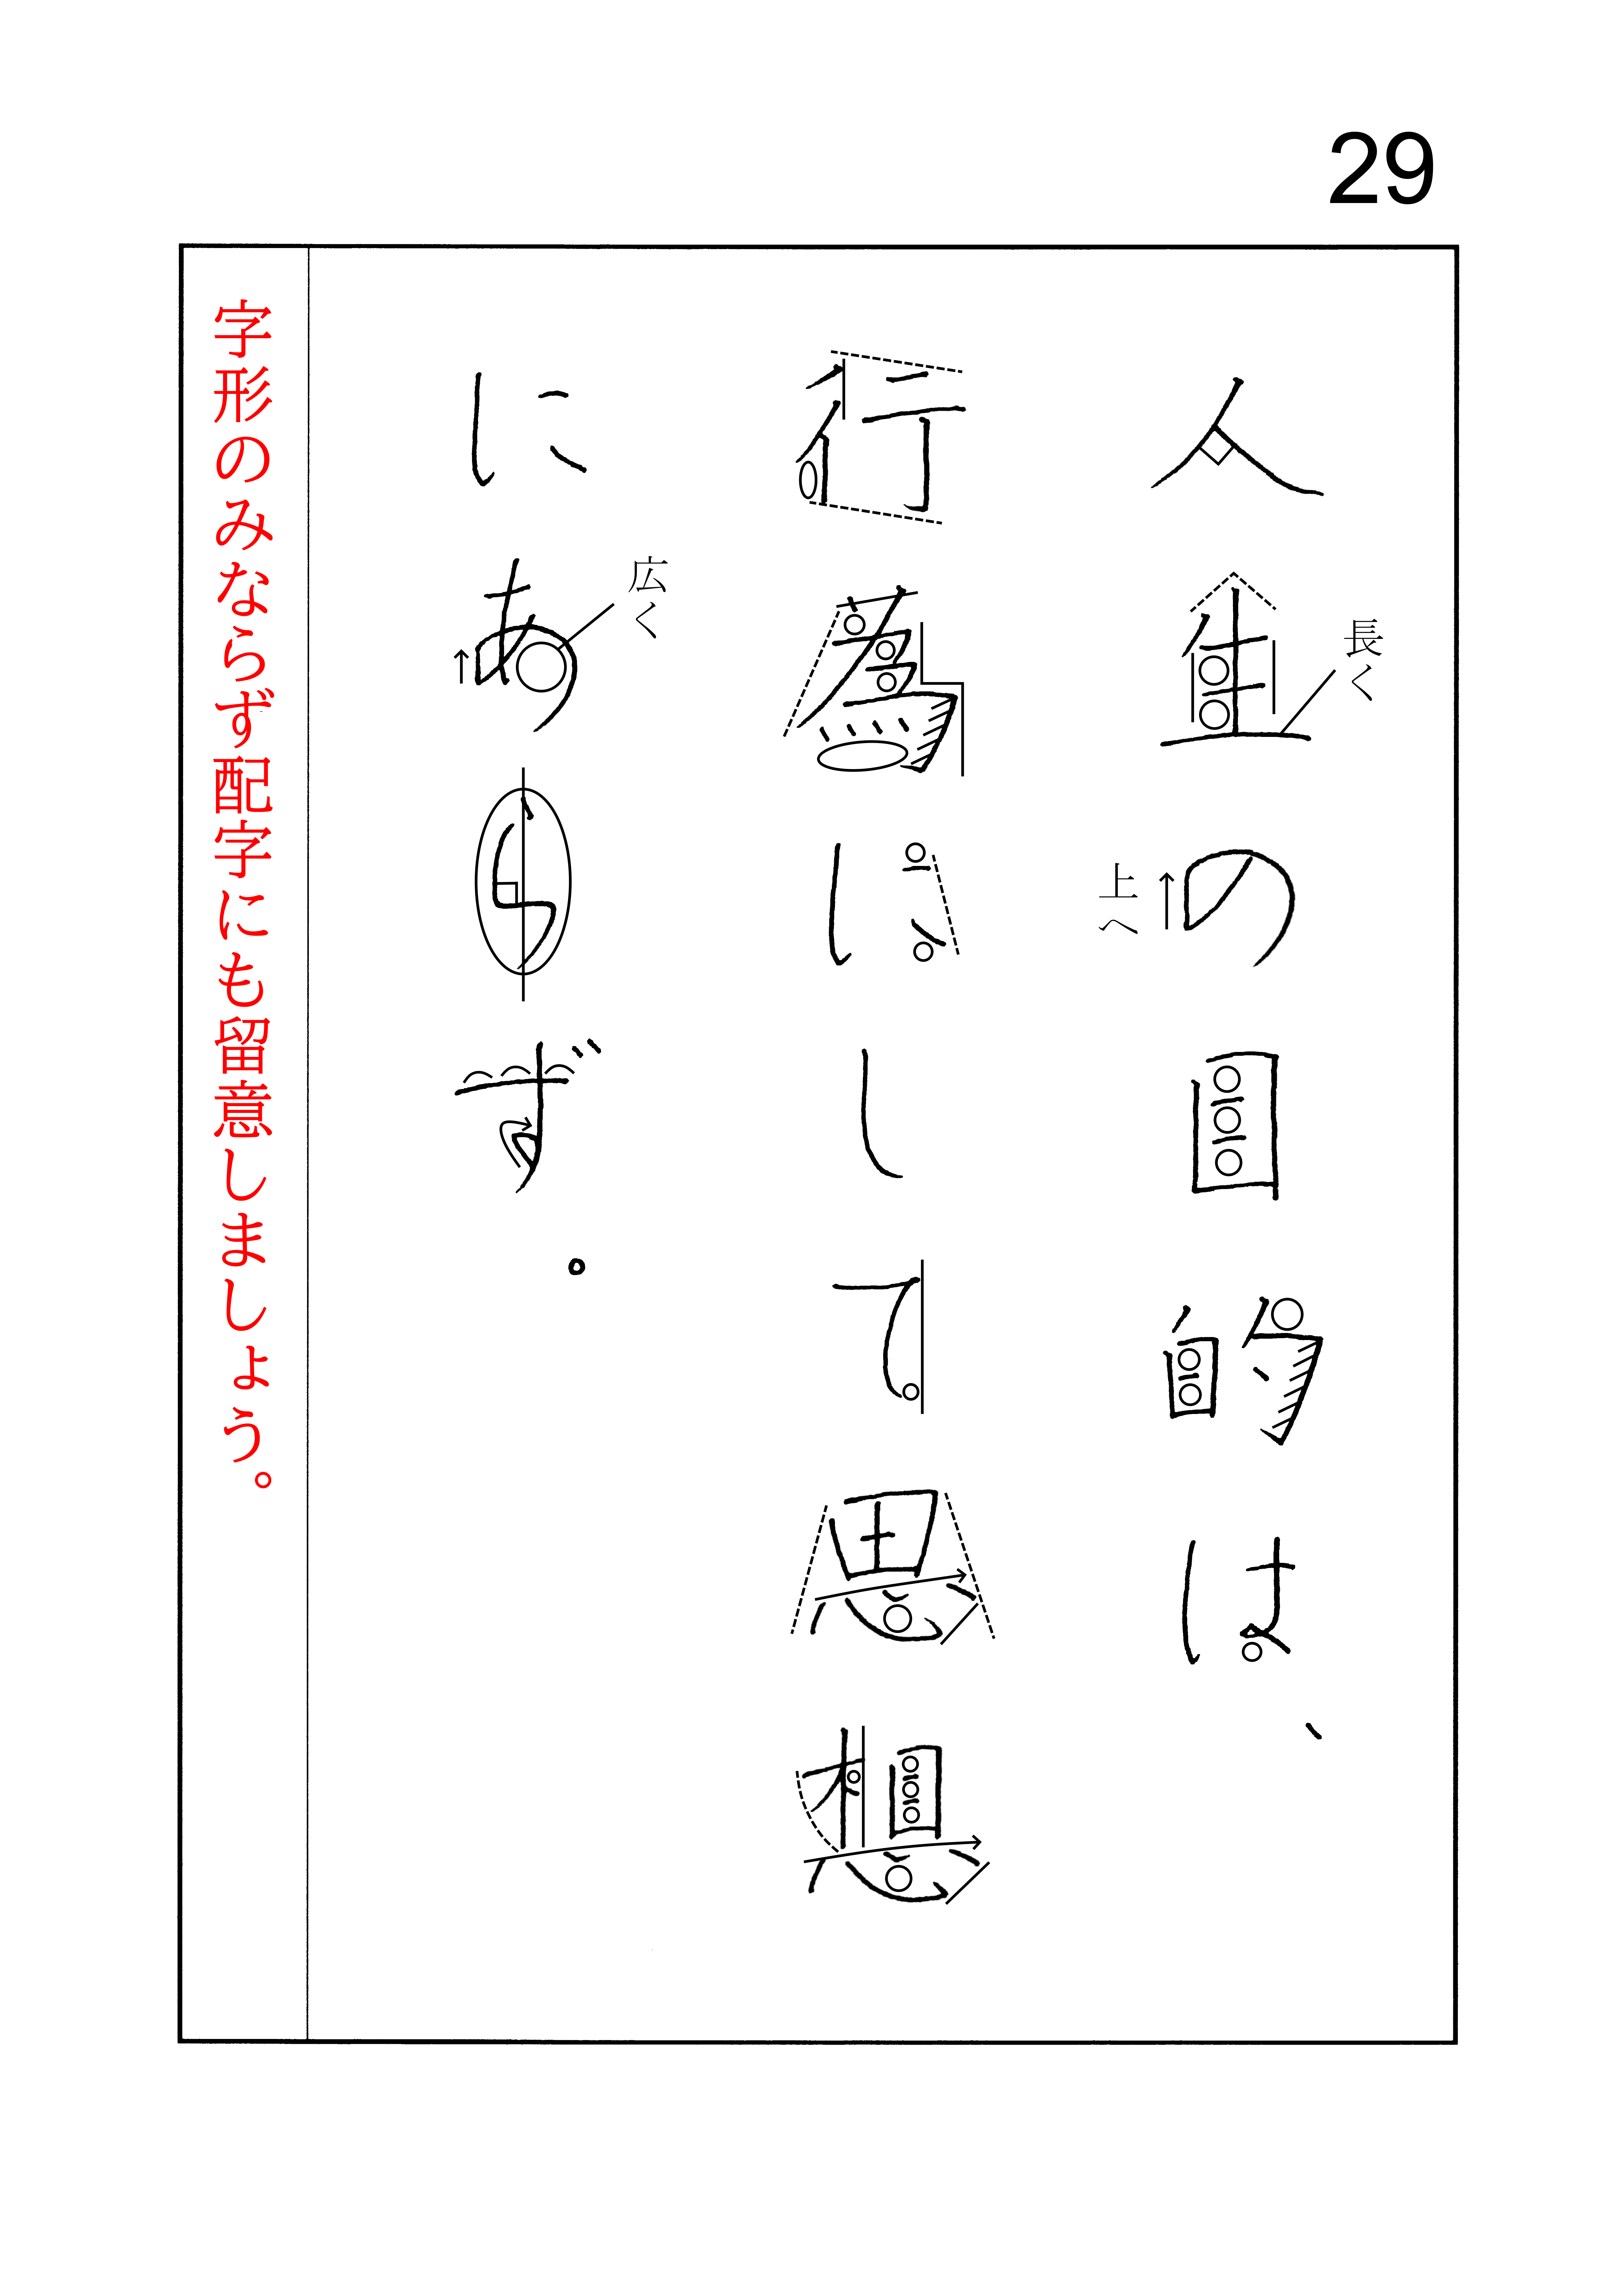 29
人生の目的は、
長く
上へ
行為にして思想
にあらず。
広く
字形のみならず配字にも留意しましょう。